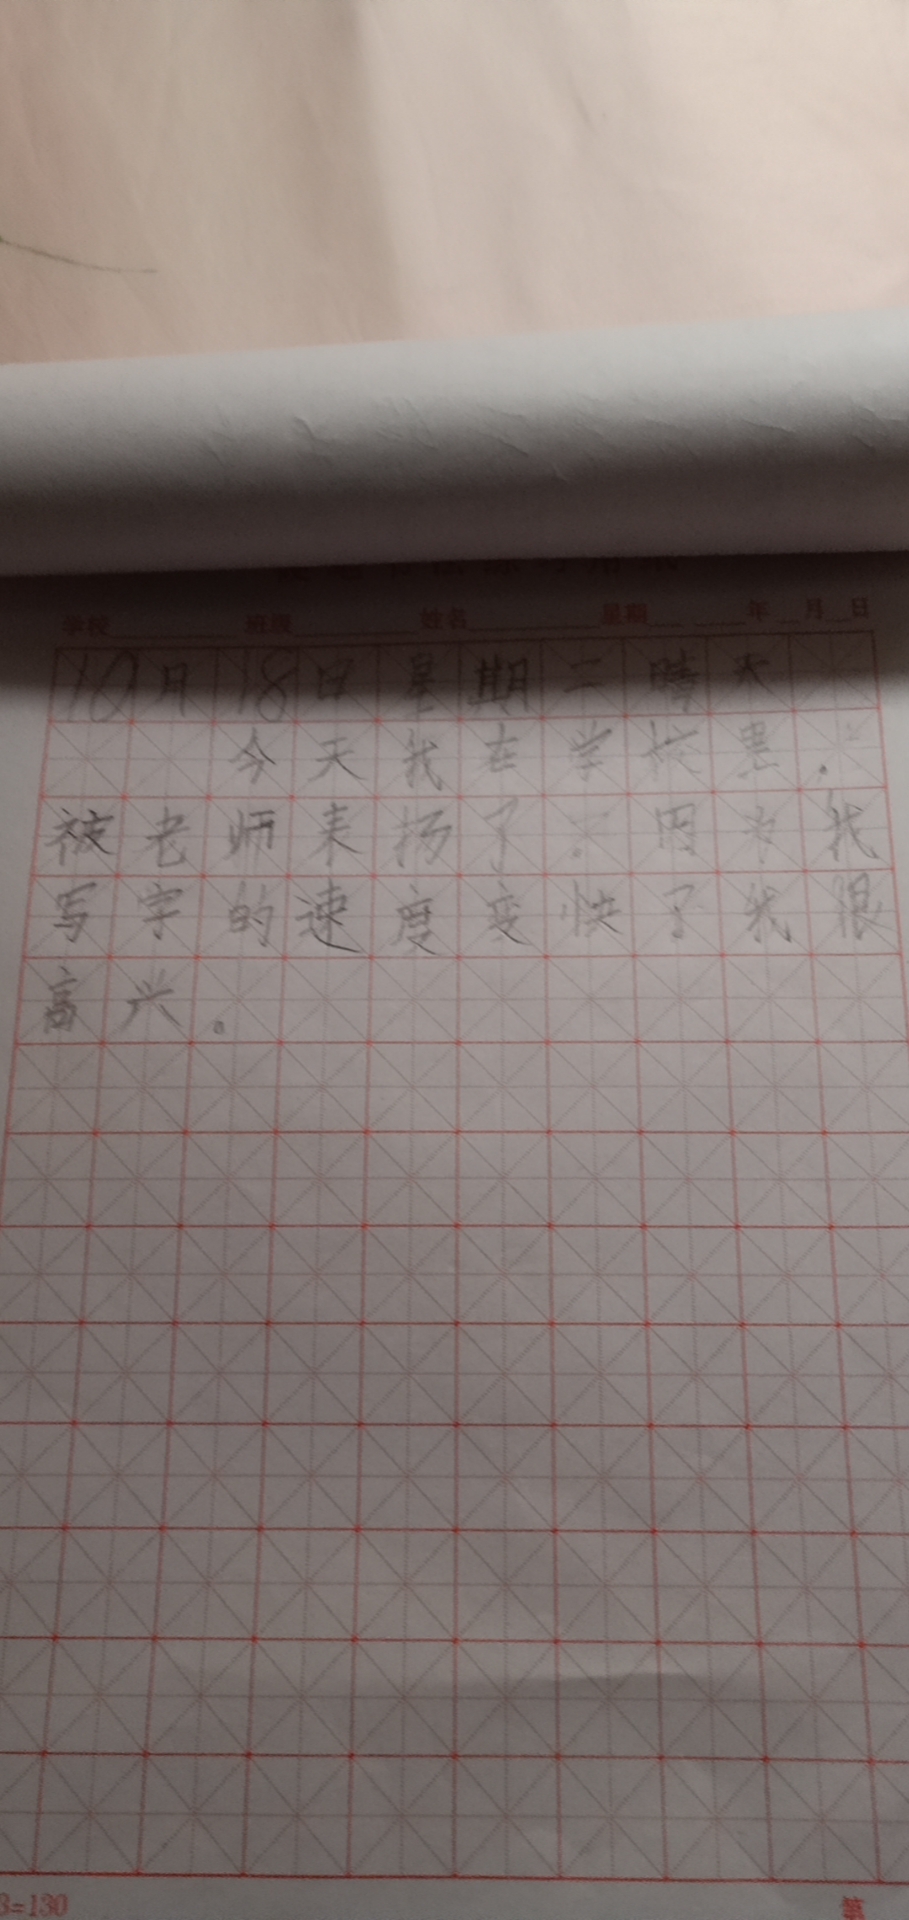 学校 班级 姓名 星期 年 月 日
10月18日星期二晴天
今天我在学校里.
被老师表扬了。因为我
写字的速度变快了我很
高兴。
3=130
第